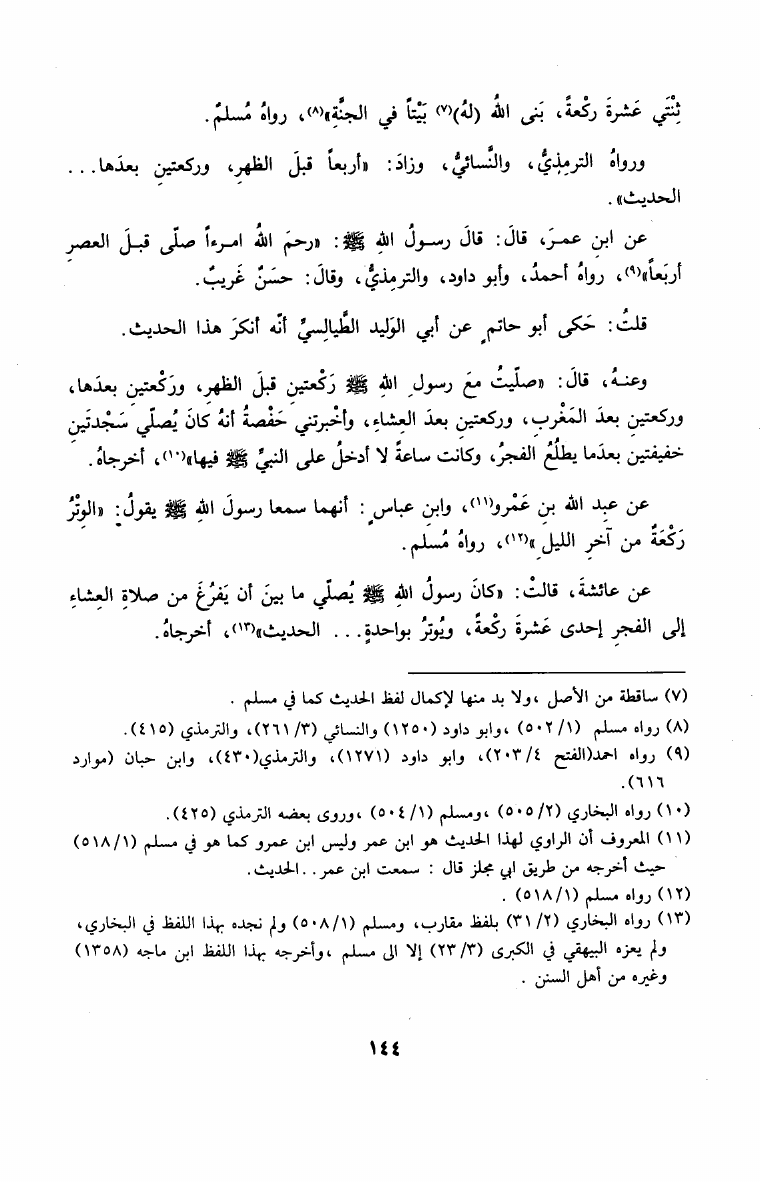 ثِنْتَي عَشرةَ ركْعةً، بَنى اللهُ (لهُ)(٧) بَيْتاً في الجنَّةِ»(٨)، رواهُ مُسلمٌ.
ورواهُ الترمِذيُّ، والنَّسائيُّ، وزادَ: «أربعاً قبلَ الظهرِ، وركعتينِ بعدَها...
الحديث».
عن ابنِ عمـرَ، قالَ: قالَ رسـولُ اللهِ ﷺ: «رحمَ اللهُ امـرءاً صلّى قبـلَ العصرِ
أربَعاً»(٩)، رواهُ أحمدُ، وأبو داود، والترمِذيُّ، وقالَ: حسَنٌ غَريبٌ.
قلتُ: حَكى أبو حاتمٍ عن أبي الوَليد الطَّيالِسيِّ أنّه أنكرَ هذا الحديث.
وعنـهُ، قالَ: «صلّيتُ معَ رسولِ اللهِ ﷺ رَكْعتينِ قبلَ الظهرِ، ورَكْعتينِ بعدَها،
وركعتينِ بعدَ المَغْربِ، وركعتينِ بعدَ العِشاءِ، وأخْبرتني حَفْصةُ أنهُ كانَ يُصلّي سَجْدتَينِ
خفيفتين بعدَما يطلُعُ الفجرُ، وكانت ساعةً لا أدخلُ على النبيِّ ﷺ فيها»(١٠)، أخرجاهُ.
عن عبد الله بنِ عَمْرو(١١)، وابنِ عباسٍ: أنهما سمعا رسولَ اللهِ ﷺ يقولُ: «الوتْرُ
رَكْعَةٌ من آخرِ الليلِ»(١٢)، رواهُ مُسلم.
عن عائشةَ، قالتْ: «كانَ رسولُ اللهِ ﷺ يُصلّي ما بينَ أن يَفرُغَ من صلاةِ العِشاءِ
إلى الفجرِ إحدى عَشرةَ ركْعةً، ويُوترُ بواحدةٍ... الحديث»(١٣)، أخرجاهُ.
(٧) ساقطة من الأصل ،ولا بد منها لإكمال لفظ الحديث كما في مسلم .
(٨) رواه مسلم (٥٠٢/١) ،وابو داود (١٢٥٠) والنسائي (٢٦١/٣)، والترمذي (٤١٥).
(٩) رواه احمد(الفتح ٢٠٣/٤)، وابو داود (١٢٧١)، والترمذي(٤٣٠)، وابن حبان (موارد
٦١٦).
(١٠) رواه البخاري (٥٠٥/٢) ،ومسلم (٥٠٤/١) ،وروى بعضه الترمذي (٤٢٥).
(١١) المعروف أن الراوي لهذا الحديث هو ابن عمر وليس ابن عمرو كما هو في مسلم (٥١٨/١)
حيث أخرجه من طريق ابي مجلز قال : سمعت ابن عمر..الحديث.
(١٢) رواه مسلم (٥١٨/١) .
(١٣) رواه البخاري (٣١/٢) بلفظ مقارب، ومسلم (٥٠٨/١) ولم نجده بهذا اللفظ في البخاري،
ولم يعزه البيهقي في الكبرى (٢٣/٣) إلا الى مسلم ،وأخرجه بهذا اللفظ ابن ماجه (١٣٥٨)
وغيره من أهل السنن .
١٤٤